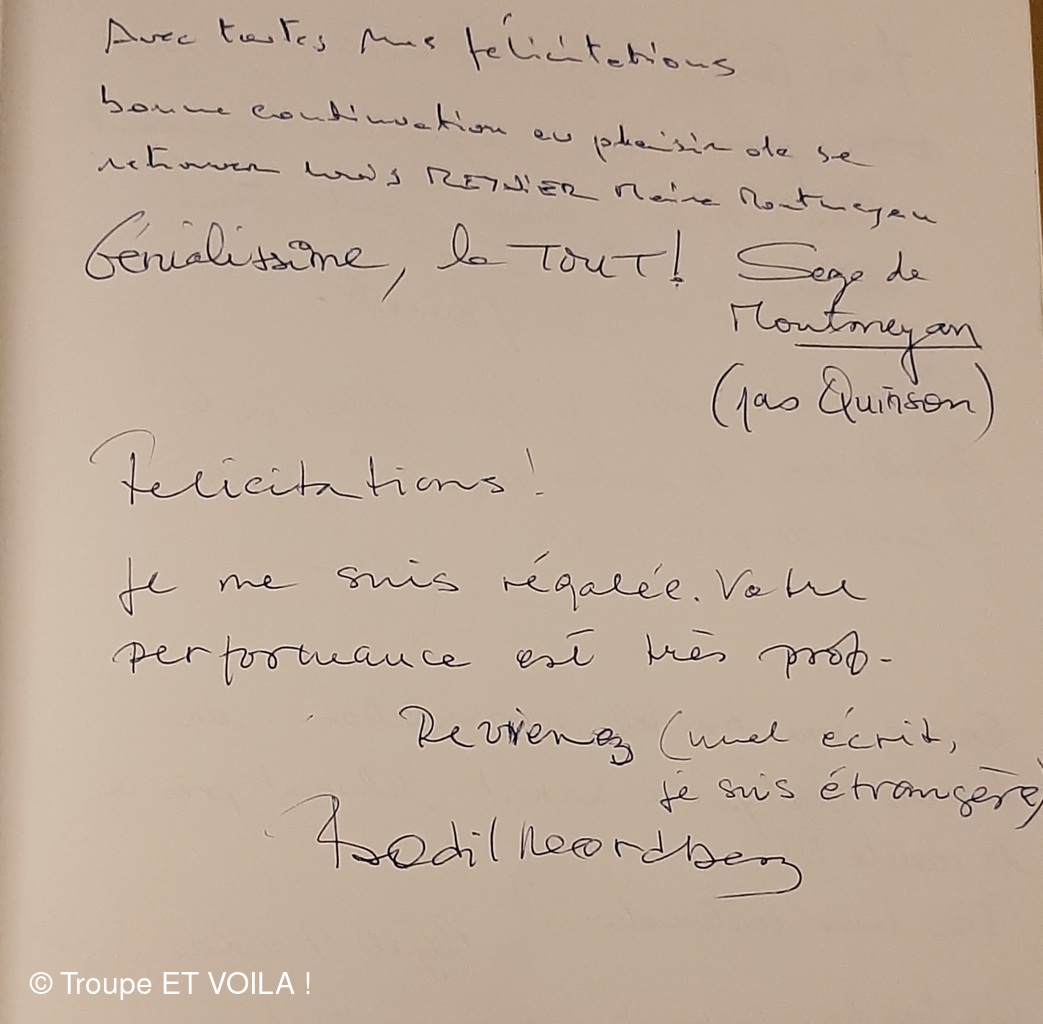 Avec toutes mes félicitations
bonne continuation au plaisir de se
retrouver REYNIER Maire Montmeyan
Génialissime, le TOUT! Serge de
Montmeyan
(pas Quinson)
Felicitations!
Je me suis régalée. Votre
performance est très prof.
Revienez (mal écrit,
je suis étrangère)
Bodil Noordberg
© Troupe ET VOILA !